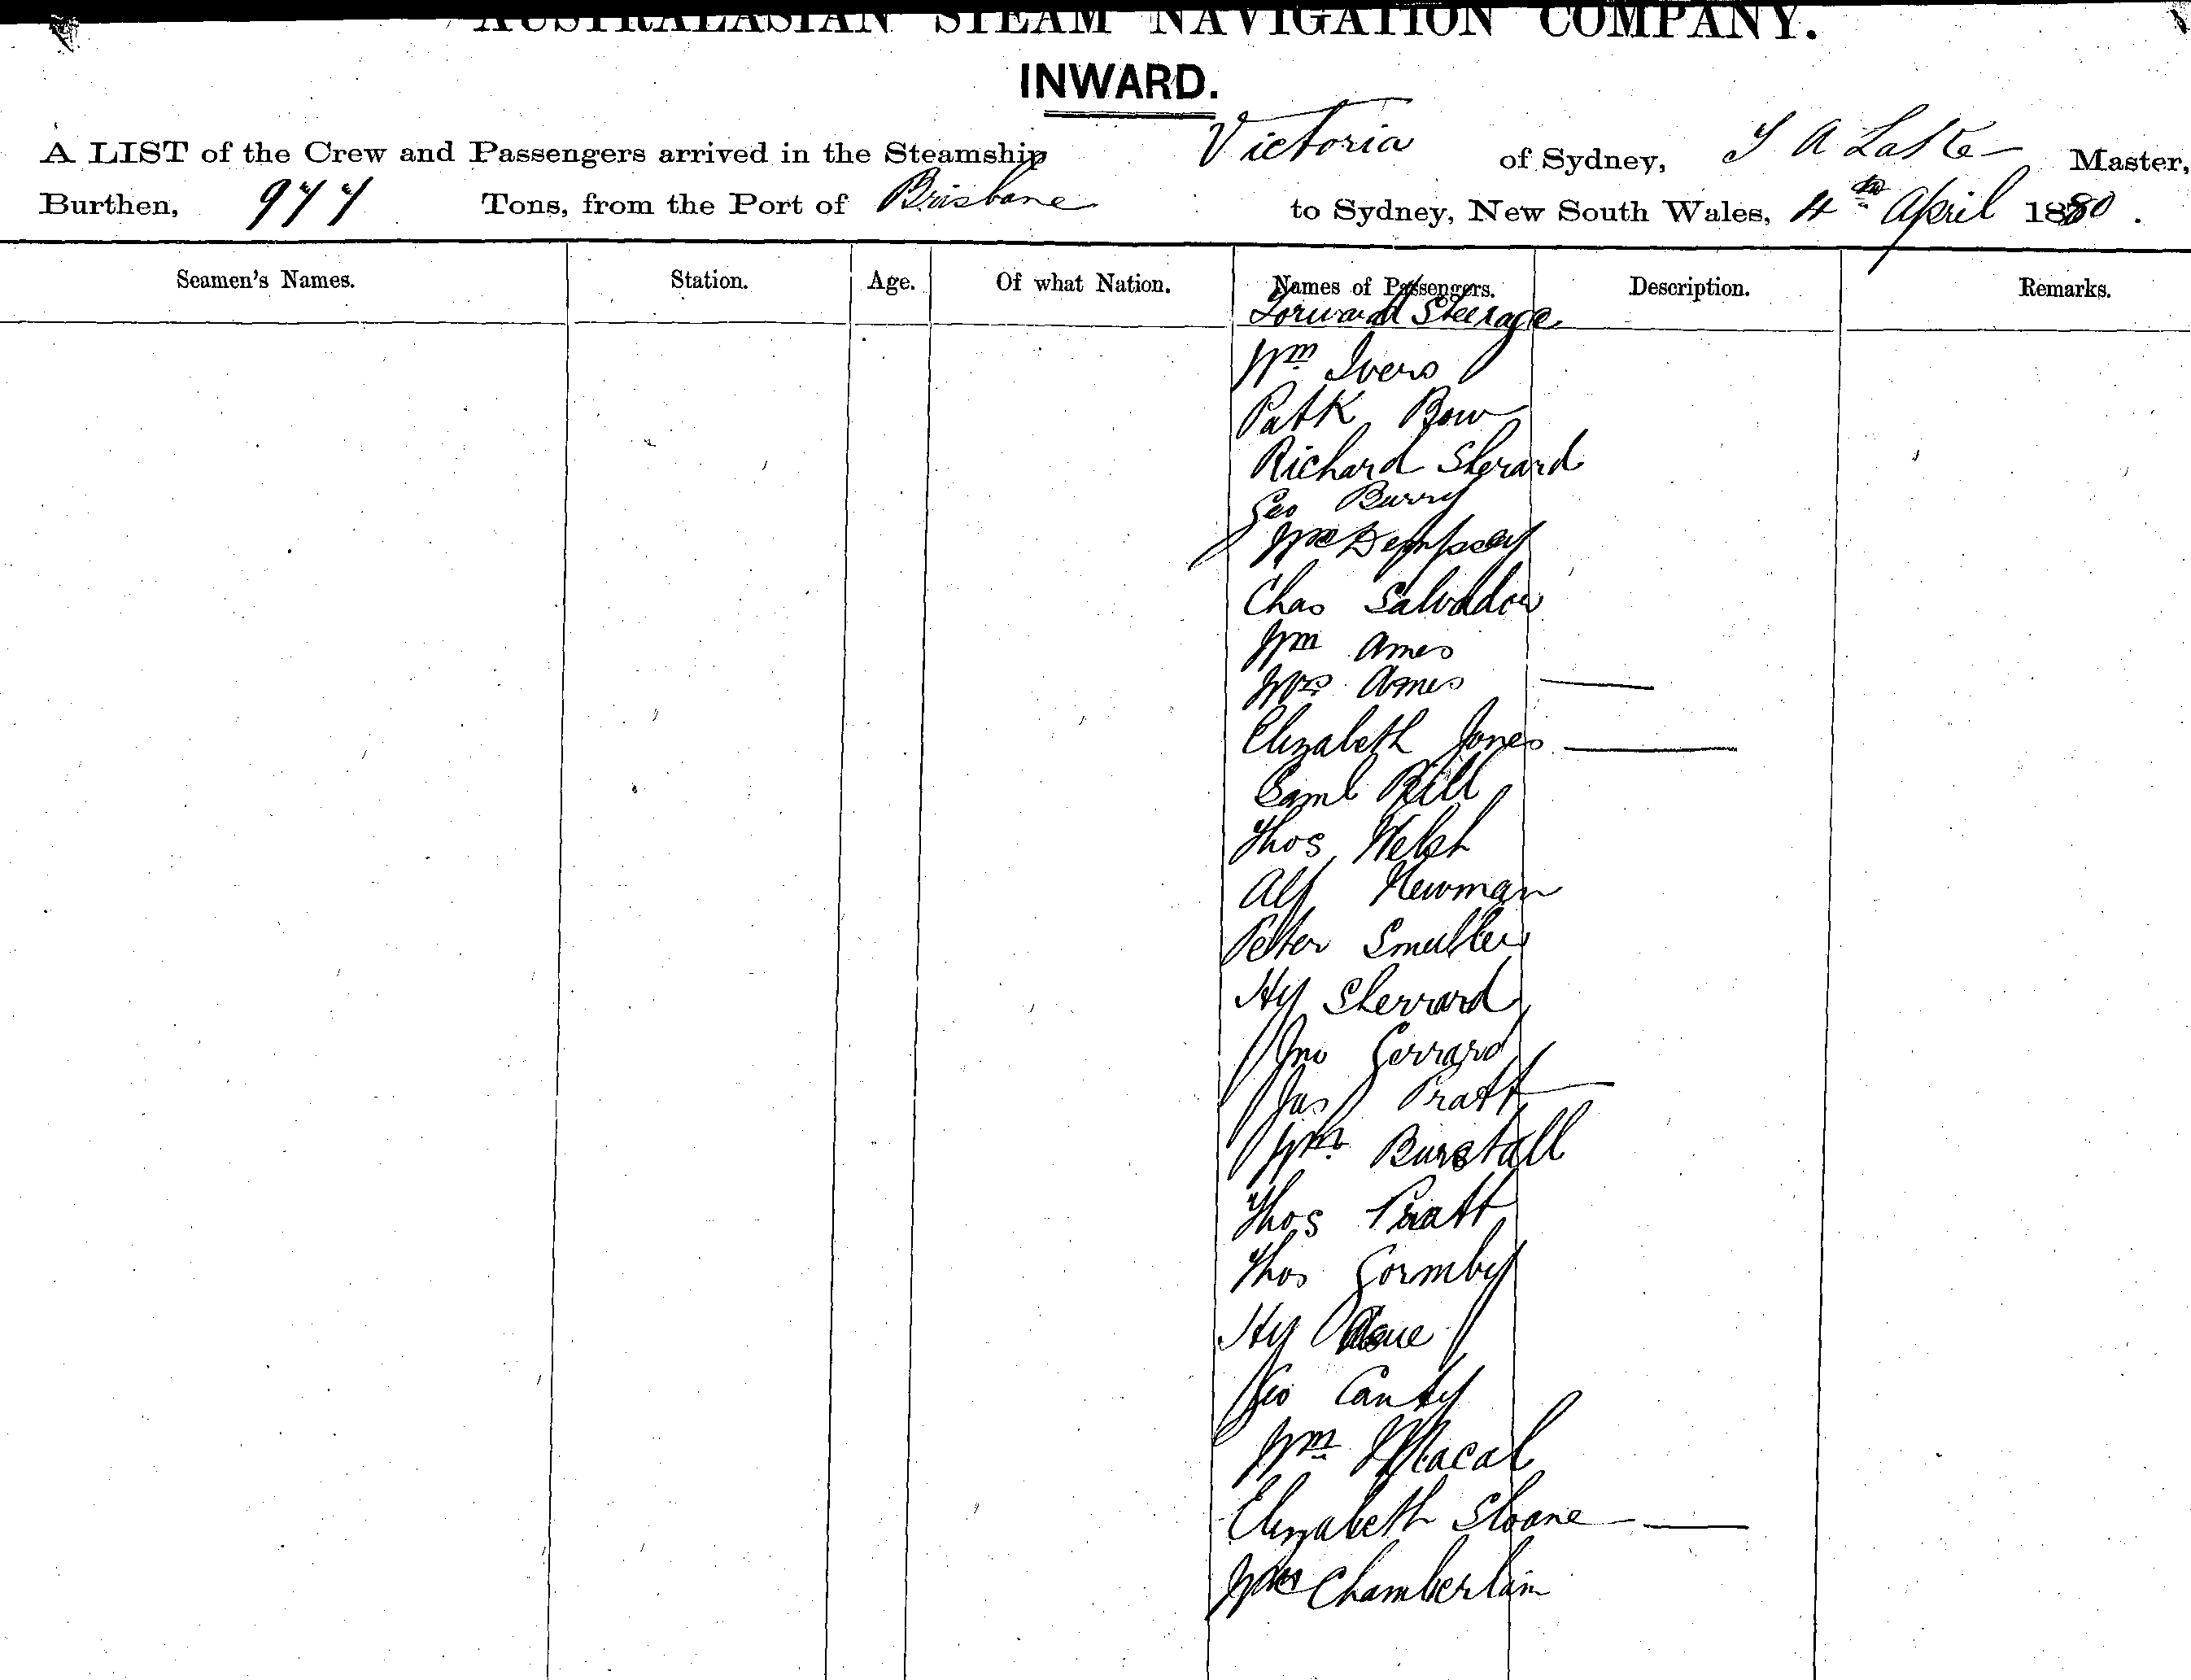 AUSTRALASIAN STEAM NAVIGATION COMPANY.
INWARD.
A LIST of the Crew and Passengers arrived in the Steamship Victoria of Sydney, T A Lake Master,
Burthen, 977 Tons, from the Port of Brisbane to Sydney, New South Wales, 4th April 1880.
Seamen's Names. Station. Age. Of what Nation. Names of Passengers. Description. Remarks.
Forward Steerage
Wm Ivers
Patk Bow
Richard Sherard
Geo Burry
Dempsey
Chas Salvadow
Wm Ames
Mrs Ames
Elizabeth Jones
Saml Bill
Thos Welsh
Alf Newman
Peter Smuller
Hy Sherrard
Jno Gerrard
Jas Pratt
Wm Burstall
Thos Pratt
Thos Gormby
Hy
Geo Canty
Wm Macal
Elizabeth Sloane
Chamberlain